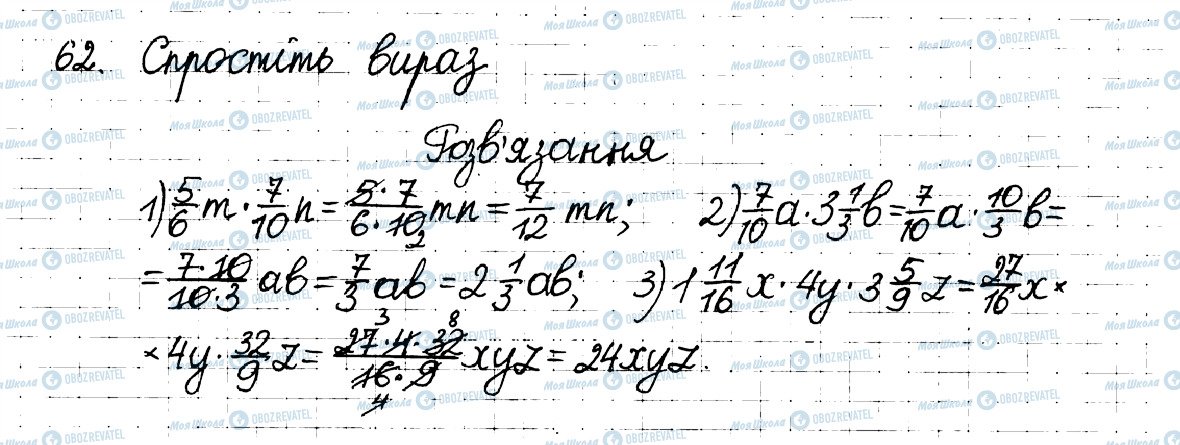 62. Спростіть вираз
Розв'язання
1) 5/6 m · 7/10 n = 5·7/6·10 mn = 7/12 mn; 2) 7/10 a · 3 1/3 b = 7/10 a · 10/3 b =
= 7·10/10·3 ab = 7/3 ab = 2 1/3 ab; 3) 1 11/16 x · 4y · 3 5/9 z = 27/16 x ×
× 4y · 32/9 z = 27·4·32/16·9 xyz = 24xyz.